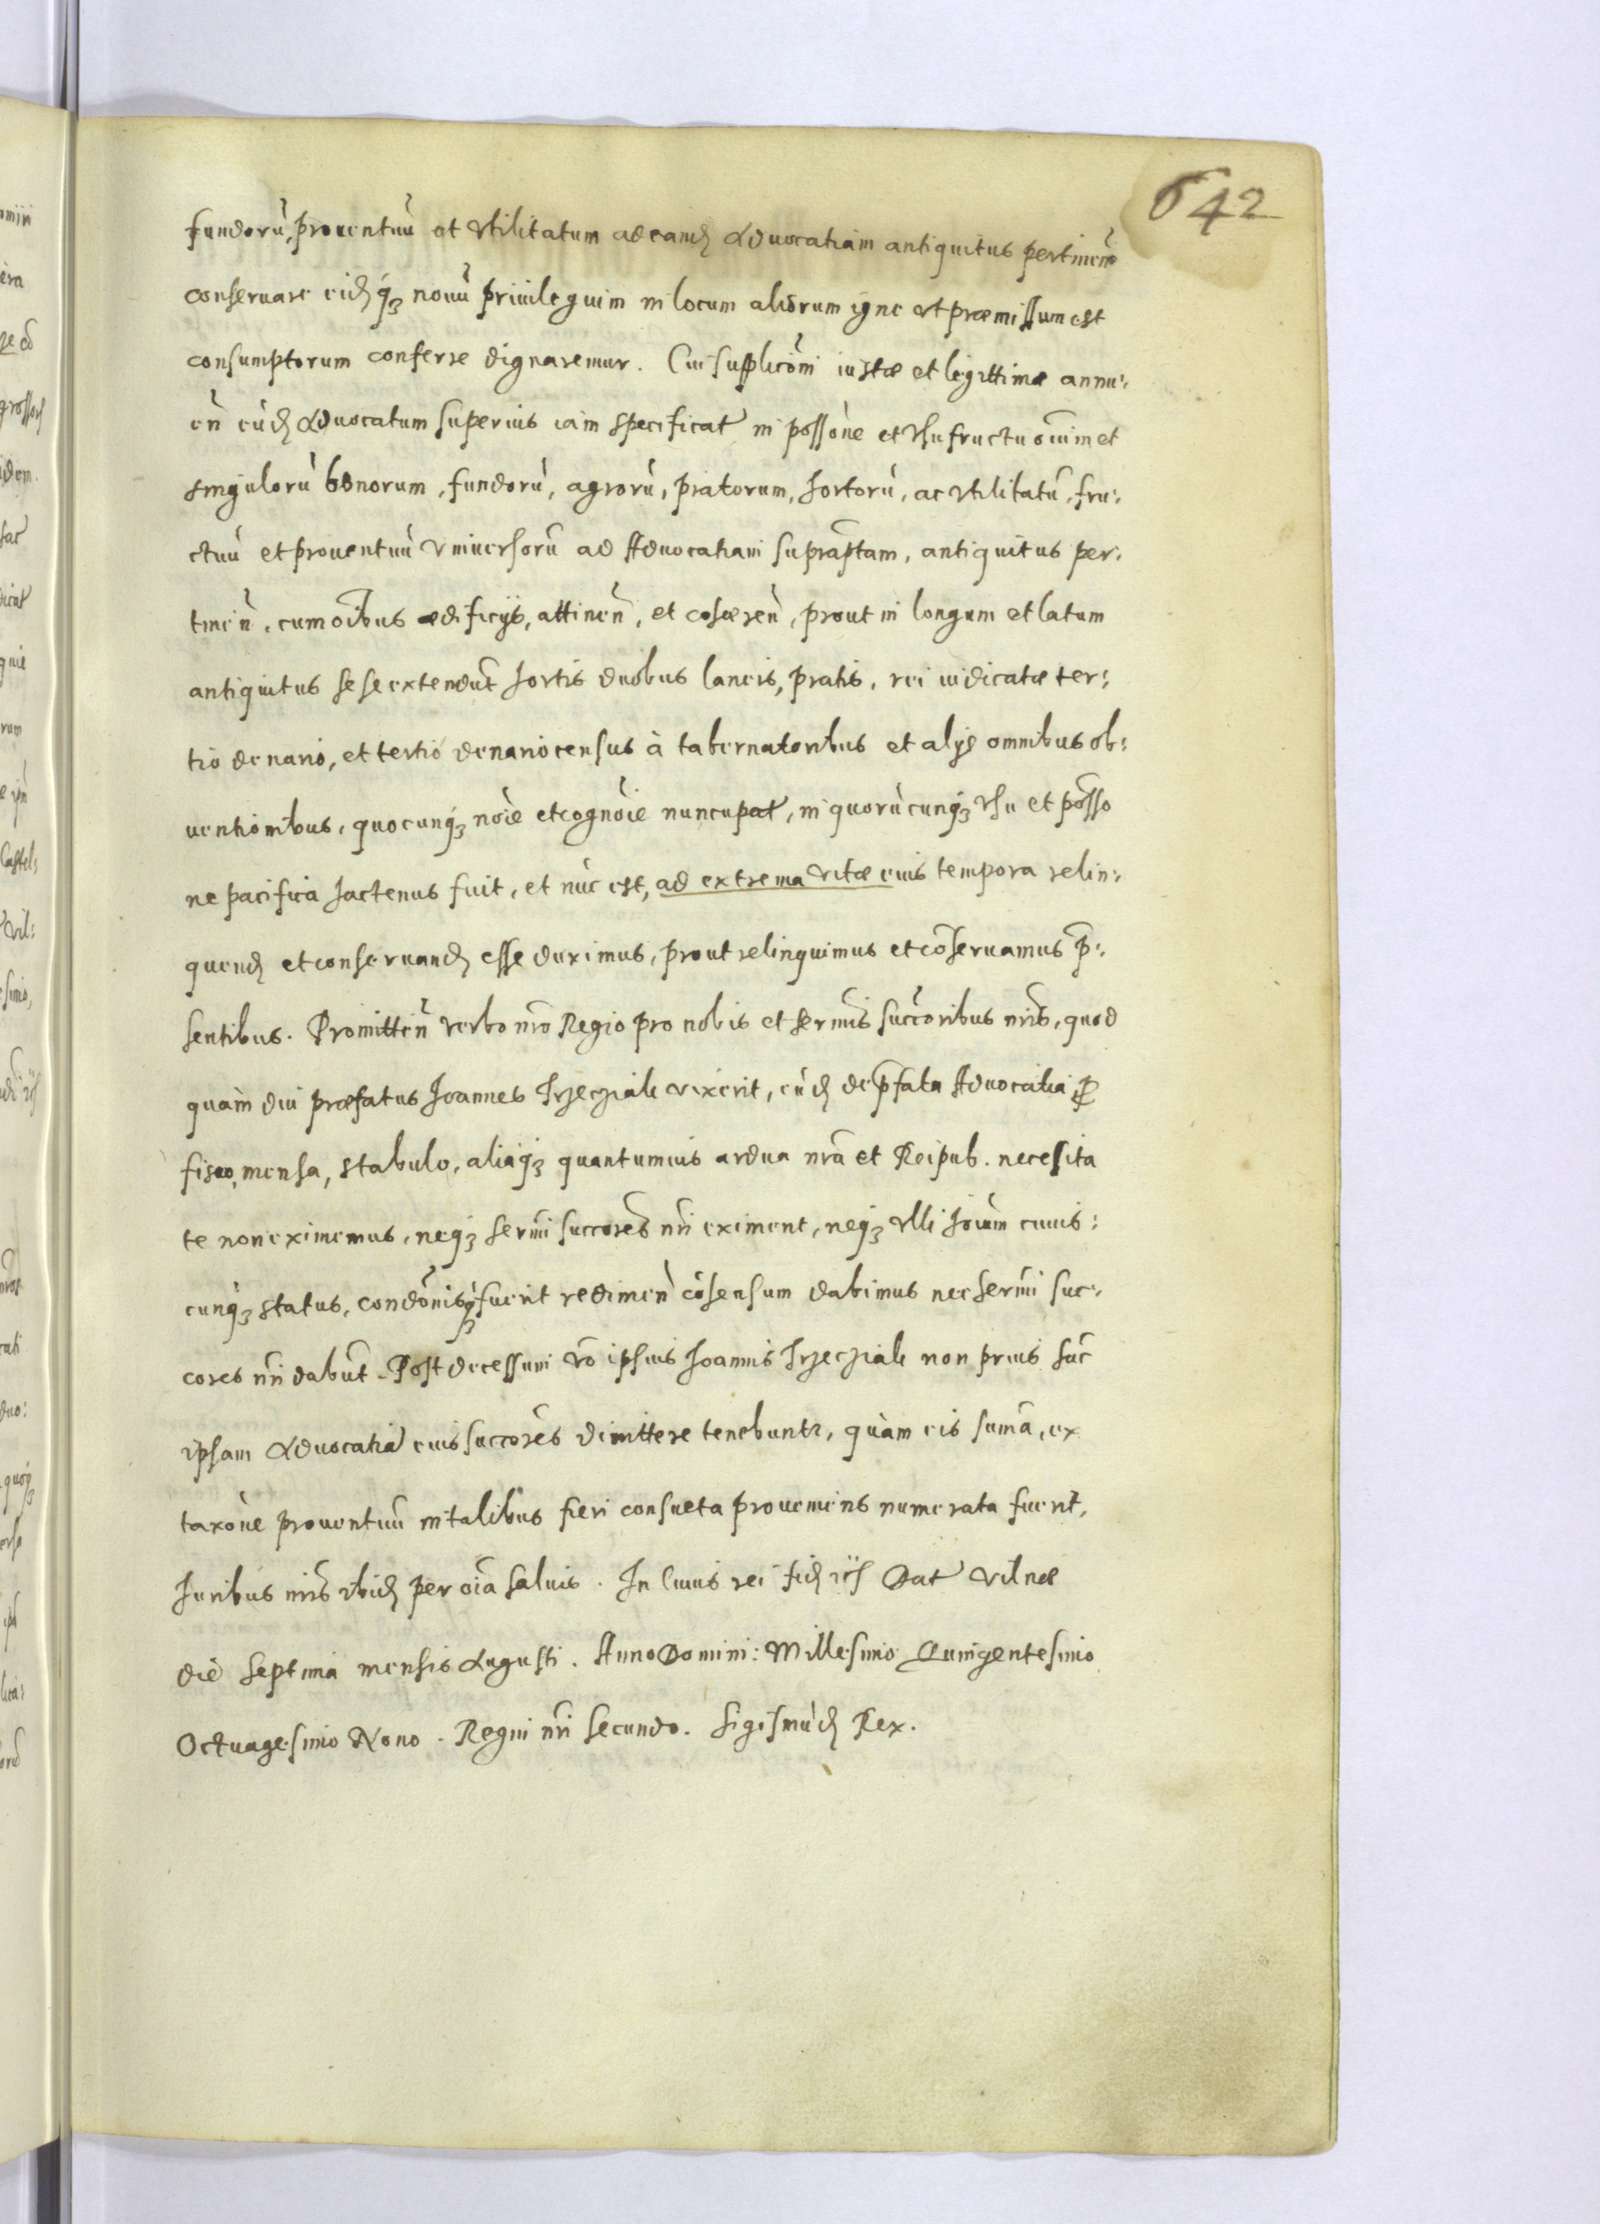 642
fundorũ, prouentuũ et vtilitatum ad eand. Aduocatiam antiquitus pertinen̄
conseruare eid. q3 nouũ priuilegium in locum aliorum igne vt præmissum est
consumptorum conferre dignaremur. Cui suplicōni iustæ et legittimæ annu:
en̄ eũd. Aduocatum superius iam specificat in possōne et vsufructu oīum et
singulorũ bonorum, fundorũ, agrorũ, pratorum, hortorũ, ac vtilitatũ, fru:
ctuũ et prouentuũ vniuersorũ ad Aduocatiam supraptam, antiquitus per:
tinen̄, cum oībus ædificijs, attinen̄, et cohæren̄, prout in longum et latum
antiquitus sese extendũt hortis duobus laneis, pratis, rei iudicatæ ter:
tio denario, et tertio denario census à tabernatoribus et alijs omnibus ob:
uentionibus, quocunq3 nōie et cognōie nuncupat, in quorũcunq3 vsu et posso
ne pacifica hactenus fuit, et nũc est, ad extrema vitæ eius tempora relin:
quend. et conseruand. esse duximus, prout relinquimus et cōseruamus p̄:
sentibus. Promitten̄ verbo nr̄o Regio pro nobis et sermīs succoribus nr̄is, quod
quàm diu præfatus Joannes Trzecziak vixerit, eũd. de p̄fata Aduocatia ꝓ
fisco, mensa, stabulo, aliaq3 quantumuis ardua nr̄a et Reipub. necesita
te non eximemus, neq3 sermī succores nr̄i eximent, neq3 vlli hoīum cuius:
cunq3 status, condōnisq3 fuerit redimen̄ cōsensum dabimus nec sermī suc:
cores nr̄i dabũt. Post decessum vō ipsius Joannis Trzecziak non prius hāc
ipsam Aduocatiã eius succores dimittere tenebuntr, quàm eis suma, ex
taxōne prouentuũ in talibus fieri consueta proueniens numerata fuerit,
Juribus nr̄is ibid. per oīa saluis. In Cuius rei fid. Dat Vilnæ
die septima mensis Augusti. Anno Domini: Millesimo Quingentesimo
Octuagesimo Nono. Regni nr̄i secundo. Sigismũd. Rex.